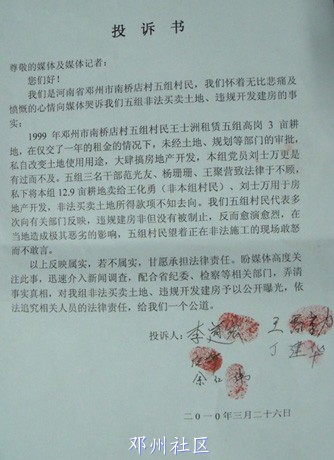 投 诉 书
尊敬的媒体及媒体记者:
您们好!
我们是河南省邓州市南桥店村五组村民,我们怀着无比悲痛及
愤慨的心情向媒体哭诉我们五组非法买卖土地、违规开发建房的事
实:
1999 年邓州市南桥店村五组村民王士洲租赁五组高岗 3 亩耕
地,在仅交了一年的租金的情况下,未经土地、规划等部门的审批,
私自改变土地使用用途,大肆搞房地产开发,本组党员刘士万更是
有过而不及。五组三名干部范光友、杨珊珊、王聚营致法律于不顾,
私下将本组 12.9 亩耕地卖给王化勇(非本组村民)、刘士万用于房
地产开发,非法买卖土地所得款项不知去向。我们五组村民代表多
次向有关部门反映,违规建房非但没有被制止,反而愈演愈烈,在
当地造成极其恶劣的影响,五组村民望着正在非法施工的现场敢怒
而不敢言。
以上反映属实,若不属实,甘愿承担法律责任。盼媒体高度关
注此事,迅速介入新闻调查,配合省纪委、检察等相关部门,弄清
事实真相,对我组非法买卖土地、违规开发建房予以公开曝光,依
法追究相关人员的法律责任,给我们一个公道。
投诉人:
二〇一〇年三月二十六日
邓州社区